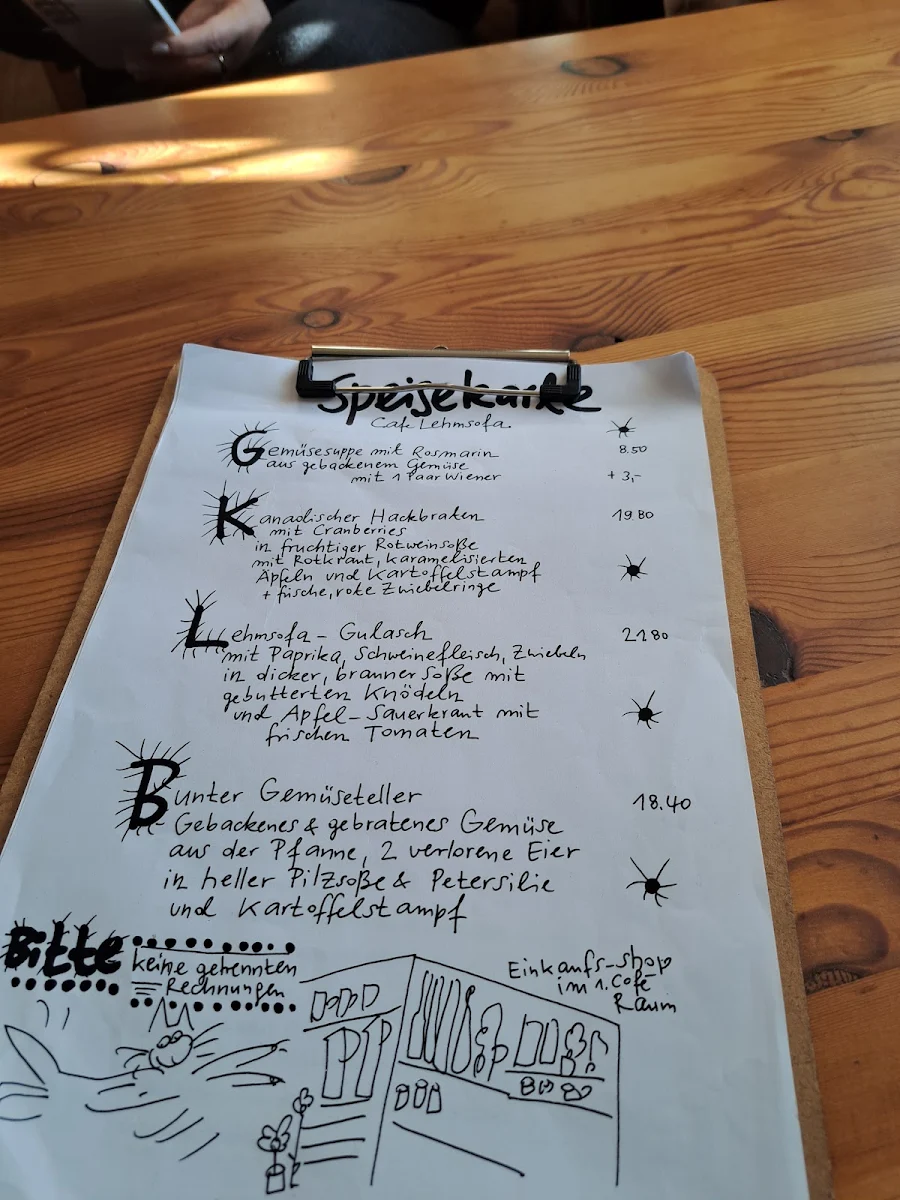 Speisekarte
Cafe Lehmsofa
Gemüsesuppe mit Rosmarin 8.50
aus gebackenem Gemüse
mit 1 Paar Wiener + 3,-
Kanadischer Hackbraten 19.80
mit Cranberries
in fruchtiger Rotweinsoße
mit Rotkraut, karamelisierten
Äpfeln und Kartoffelstampf
+ frische, rote Zwiebelringe
Lehmsofa - Gulasch 21.80
mit Paprika, Schweinefleisch, Zwiebeln
in dicker, brauner Soße mit
gebutterten Knödeln
und Apfel-Sauerkraut mit
frischen Tomaten
Bunter Gemüseteller 18.40
Gebackenes & gebratenes Gemüse
aus der Pfanne, 2 verlorene Eier
in heller Pilzsoße & Petersilie
und Kartoffelstampf
Bitte
keine getrennten
Rechnungen
Einkaufs-shop
im 1. Café
Raum